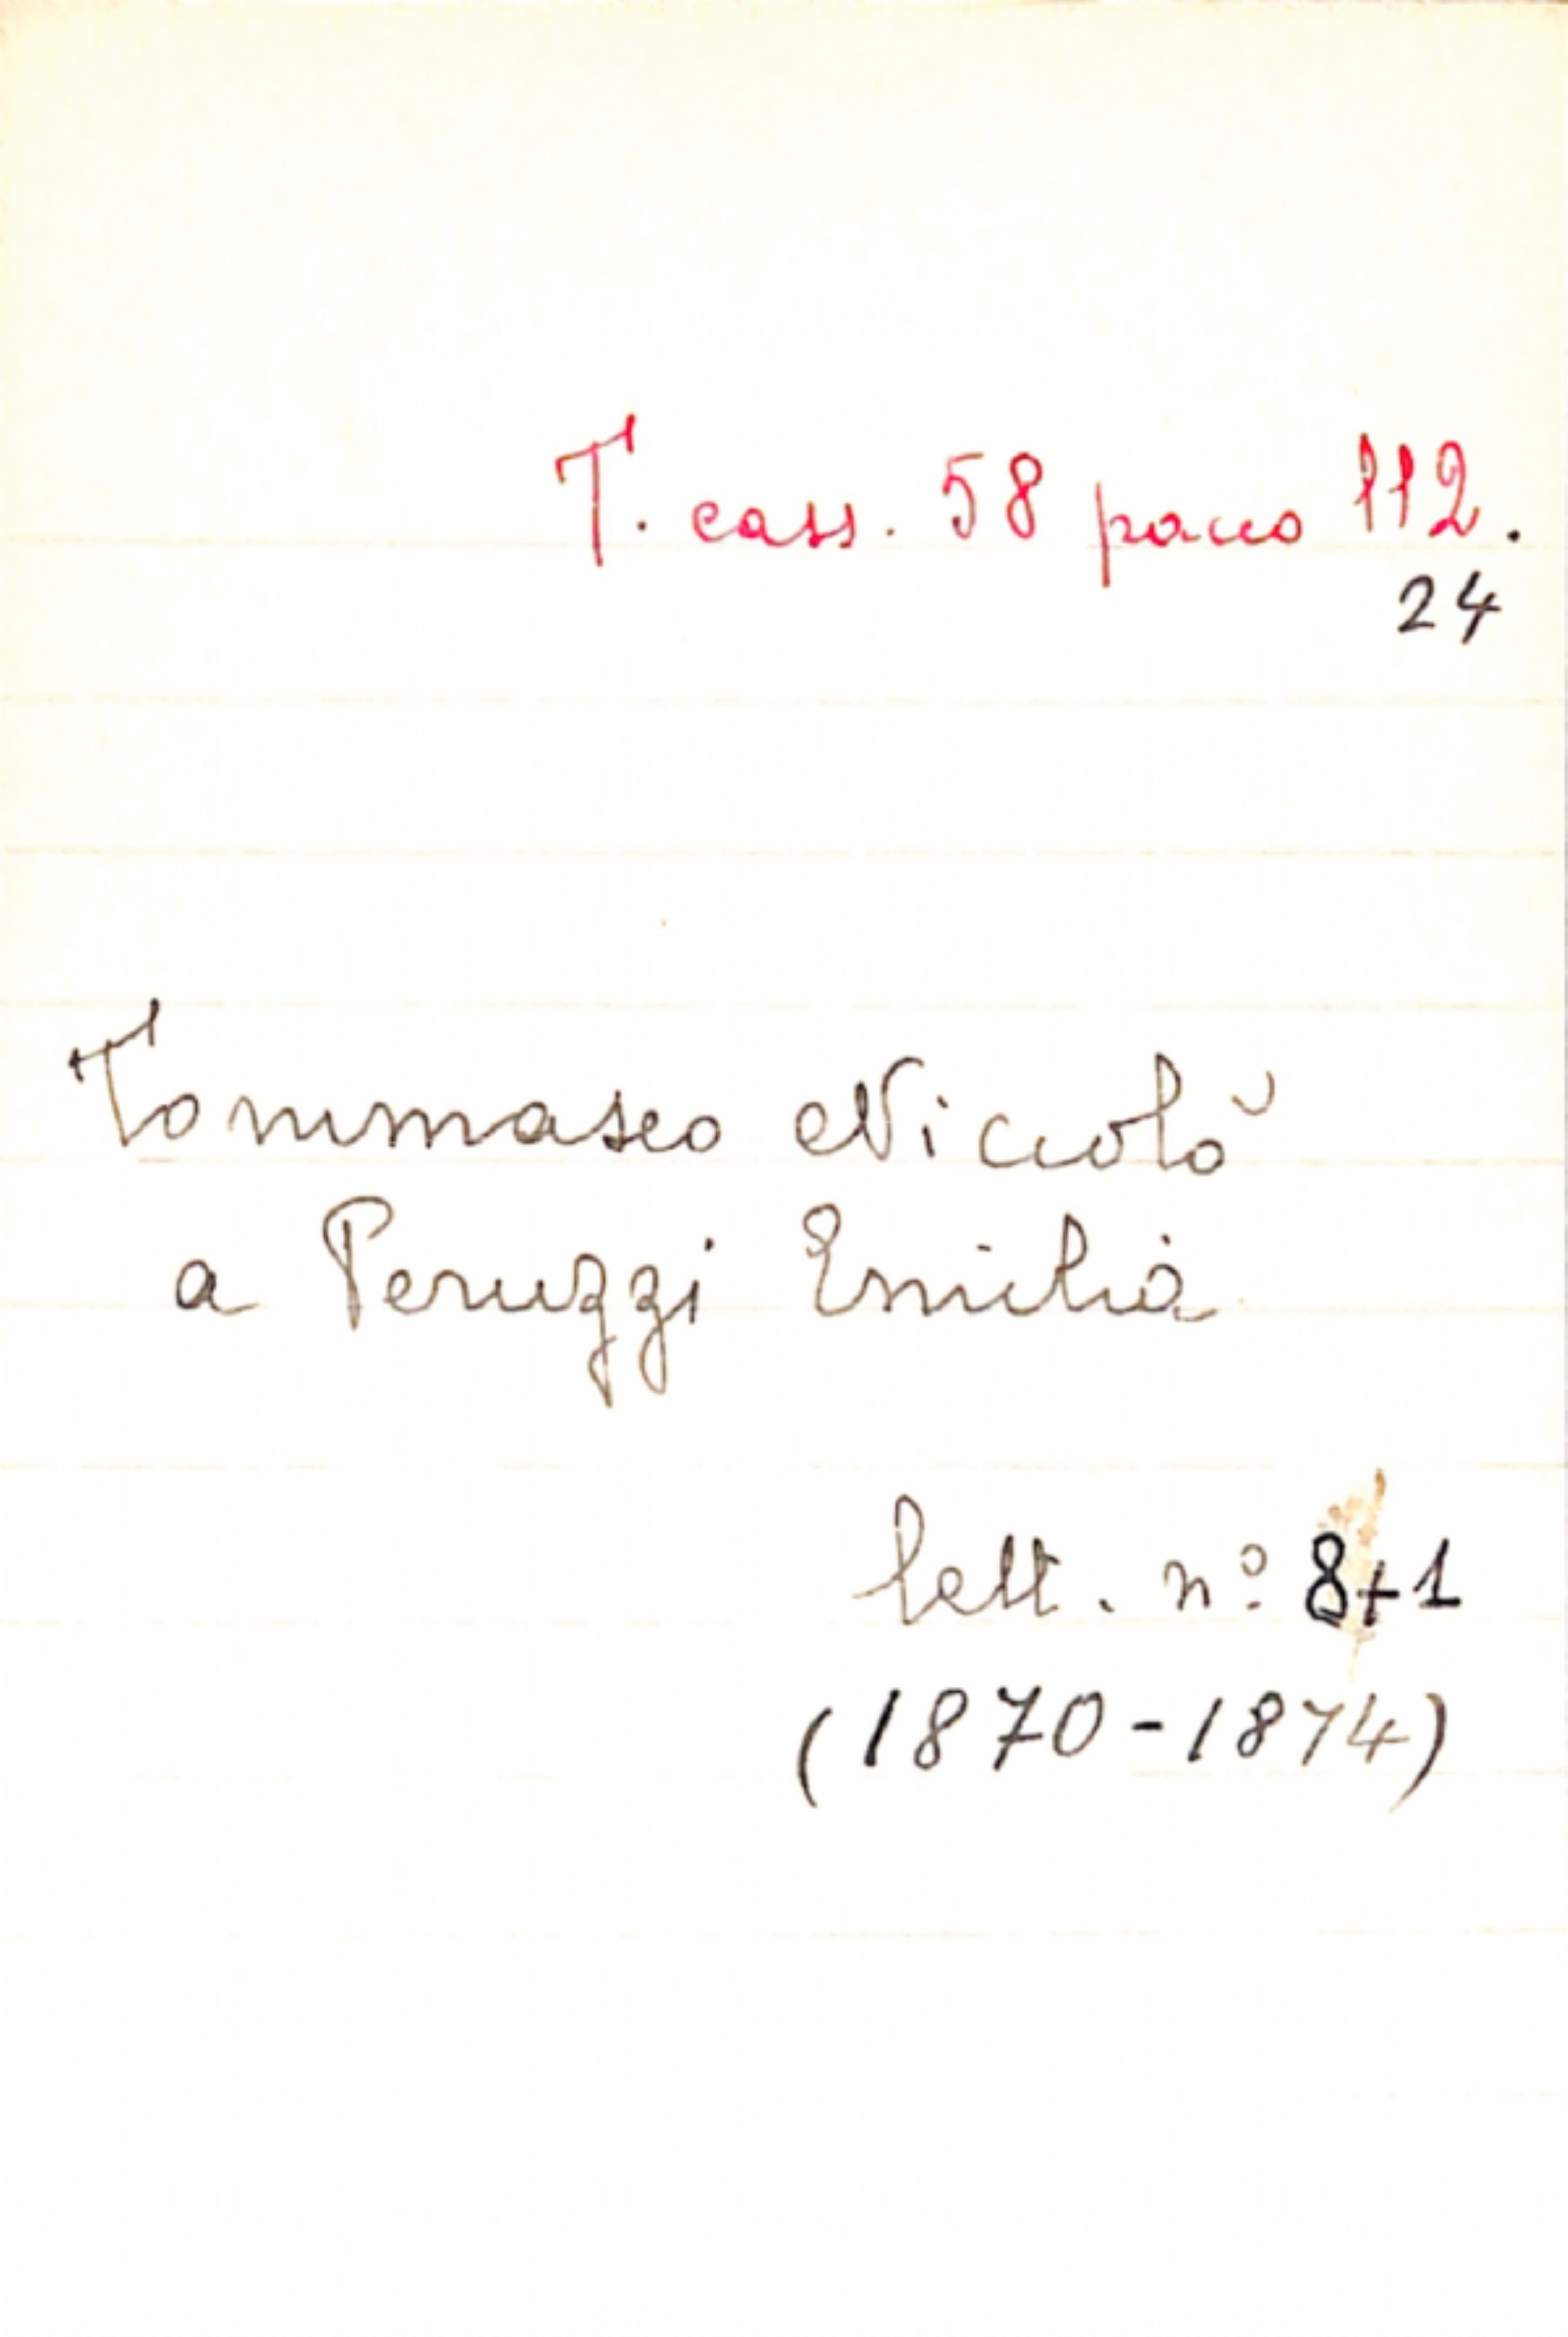 T. cass. 58 pacco 112.
24
Tommaseo Niccolò
a Peruzzi Emilia
lett. n.º 8+1
(1870-1874)